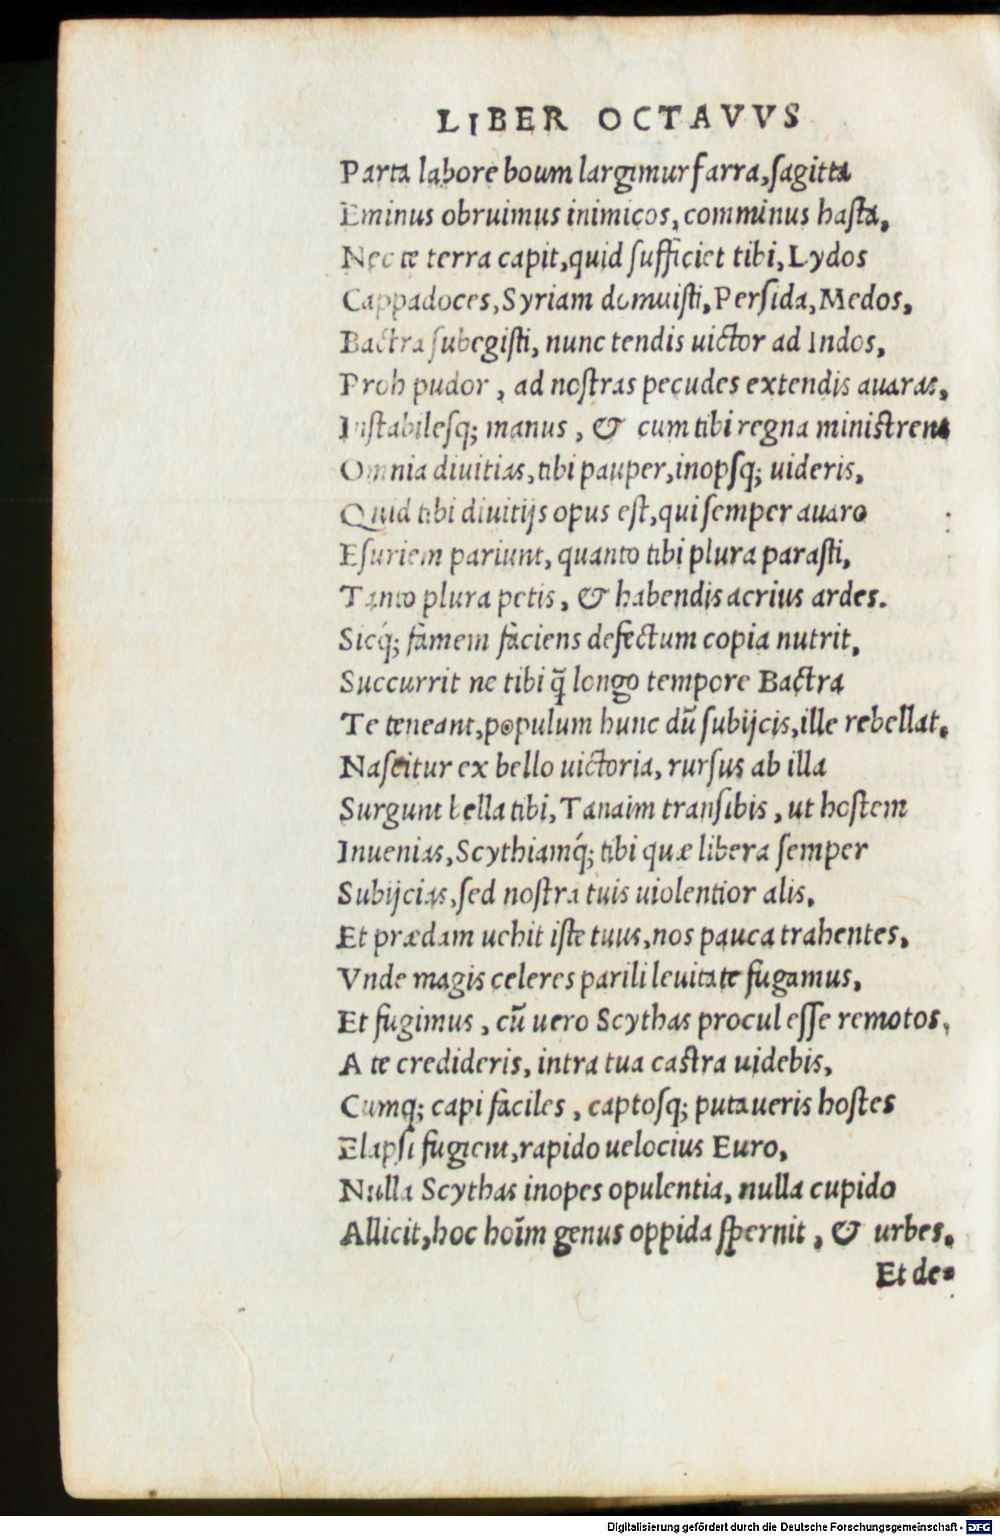 LIBER OCTAVVS
Parta labore boum largimur farra, sagitta
Eminus obruimus inimicos, comminus hasta,
Nec te terra capit, quid sufficiet tibi, Lydos
Cappadoces, Syriam domuisti, Persida, Medos,
Bactra subegisti, nunc tendis uictor ad Indos,
Proh pudor, ad nostras pecudes extendis auaras,
Instabilesq; manus, & cum tibi regna ministrent
Omnia diuitias, tibi pauper, inopsq; uideris,
Quid tibi diuitijs opus est, qui semper auaro
Esuriem pariunt, quanto tibi plura parasti,
Tanto plura petis, & habendis acrius ardes.
Sicq́; famem faciens defectum copia nutrit,
Succurrit ne tibi q̃ longo tempore Bactra
Te teneant, populum hunc dũ subijcis, ille rebellat,
Nascitur ex bello uictoria, rursus ab illa
Surgunt bella tibi, Tanaim transibis, ut hostem
Inuenias, Scythiamq́; tibi quæ libera semper
Subijcias, sed nostra tuis uiolentior alis,
Et prædam uehit iste tuus, nos pauca trahentes,
Vnde magis celeres parili leuitate fugamus,
Et fugimus, cũ uero Scythas procul esse remotos,
A te credideris, intra tua castra uidebis,
Cumq; capi faciles, captosq; putaueris hostes
Elapsi fugient, rapido uelocius Euro,
Nulla Scythas inopes opulentia, nulla cupido
Allicit, hoc hoĩm genus oppida spernit, & urbes,
Et de-
Digitalisierung gefördert durch die Deutsche Forschungsgemeinschaft - DFG